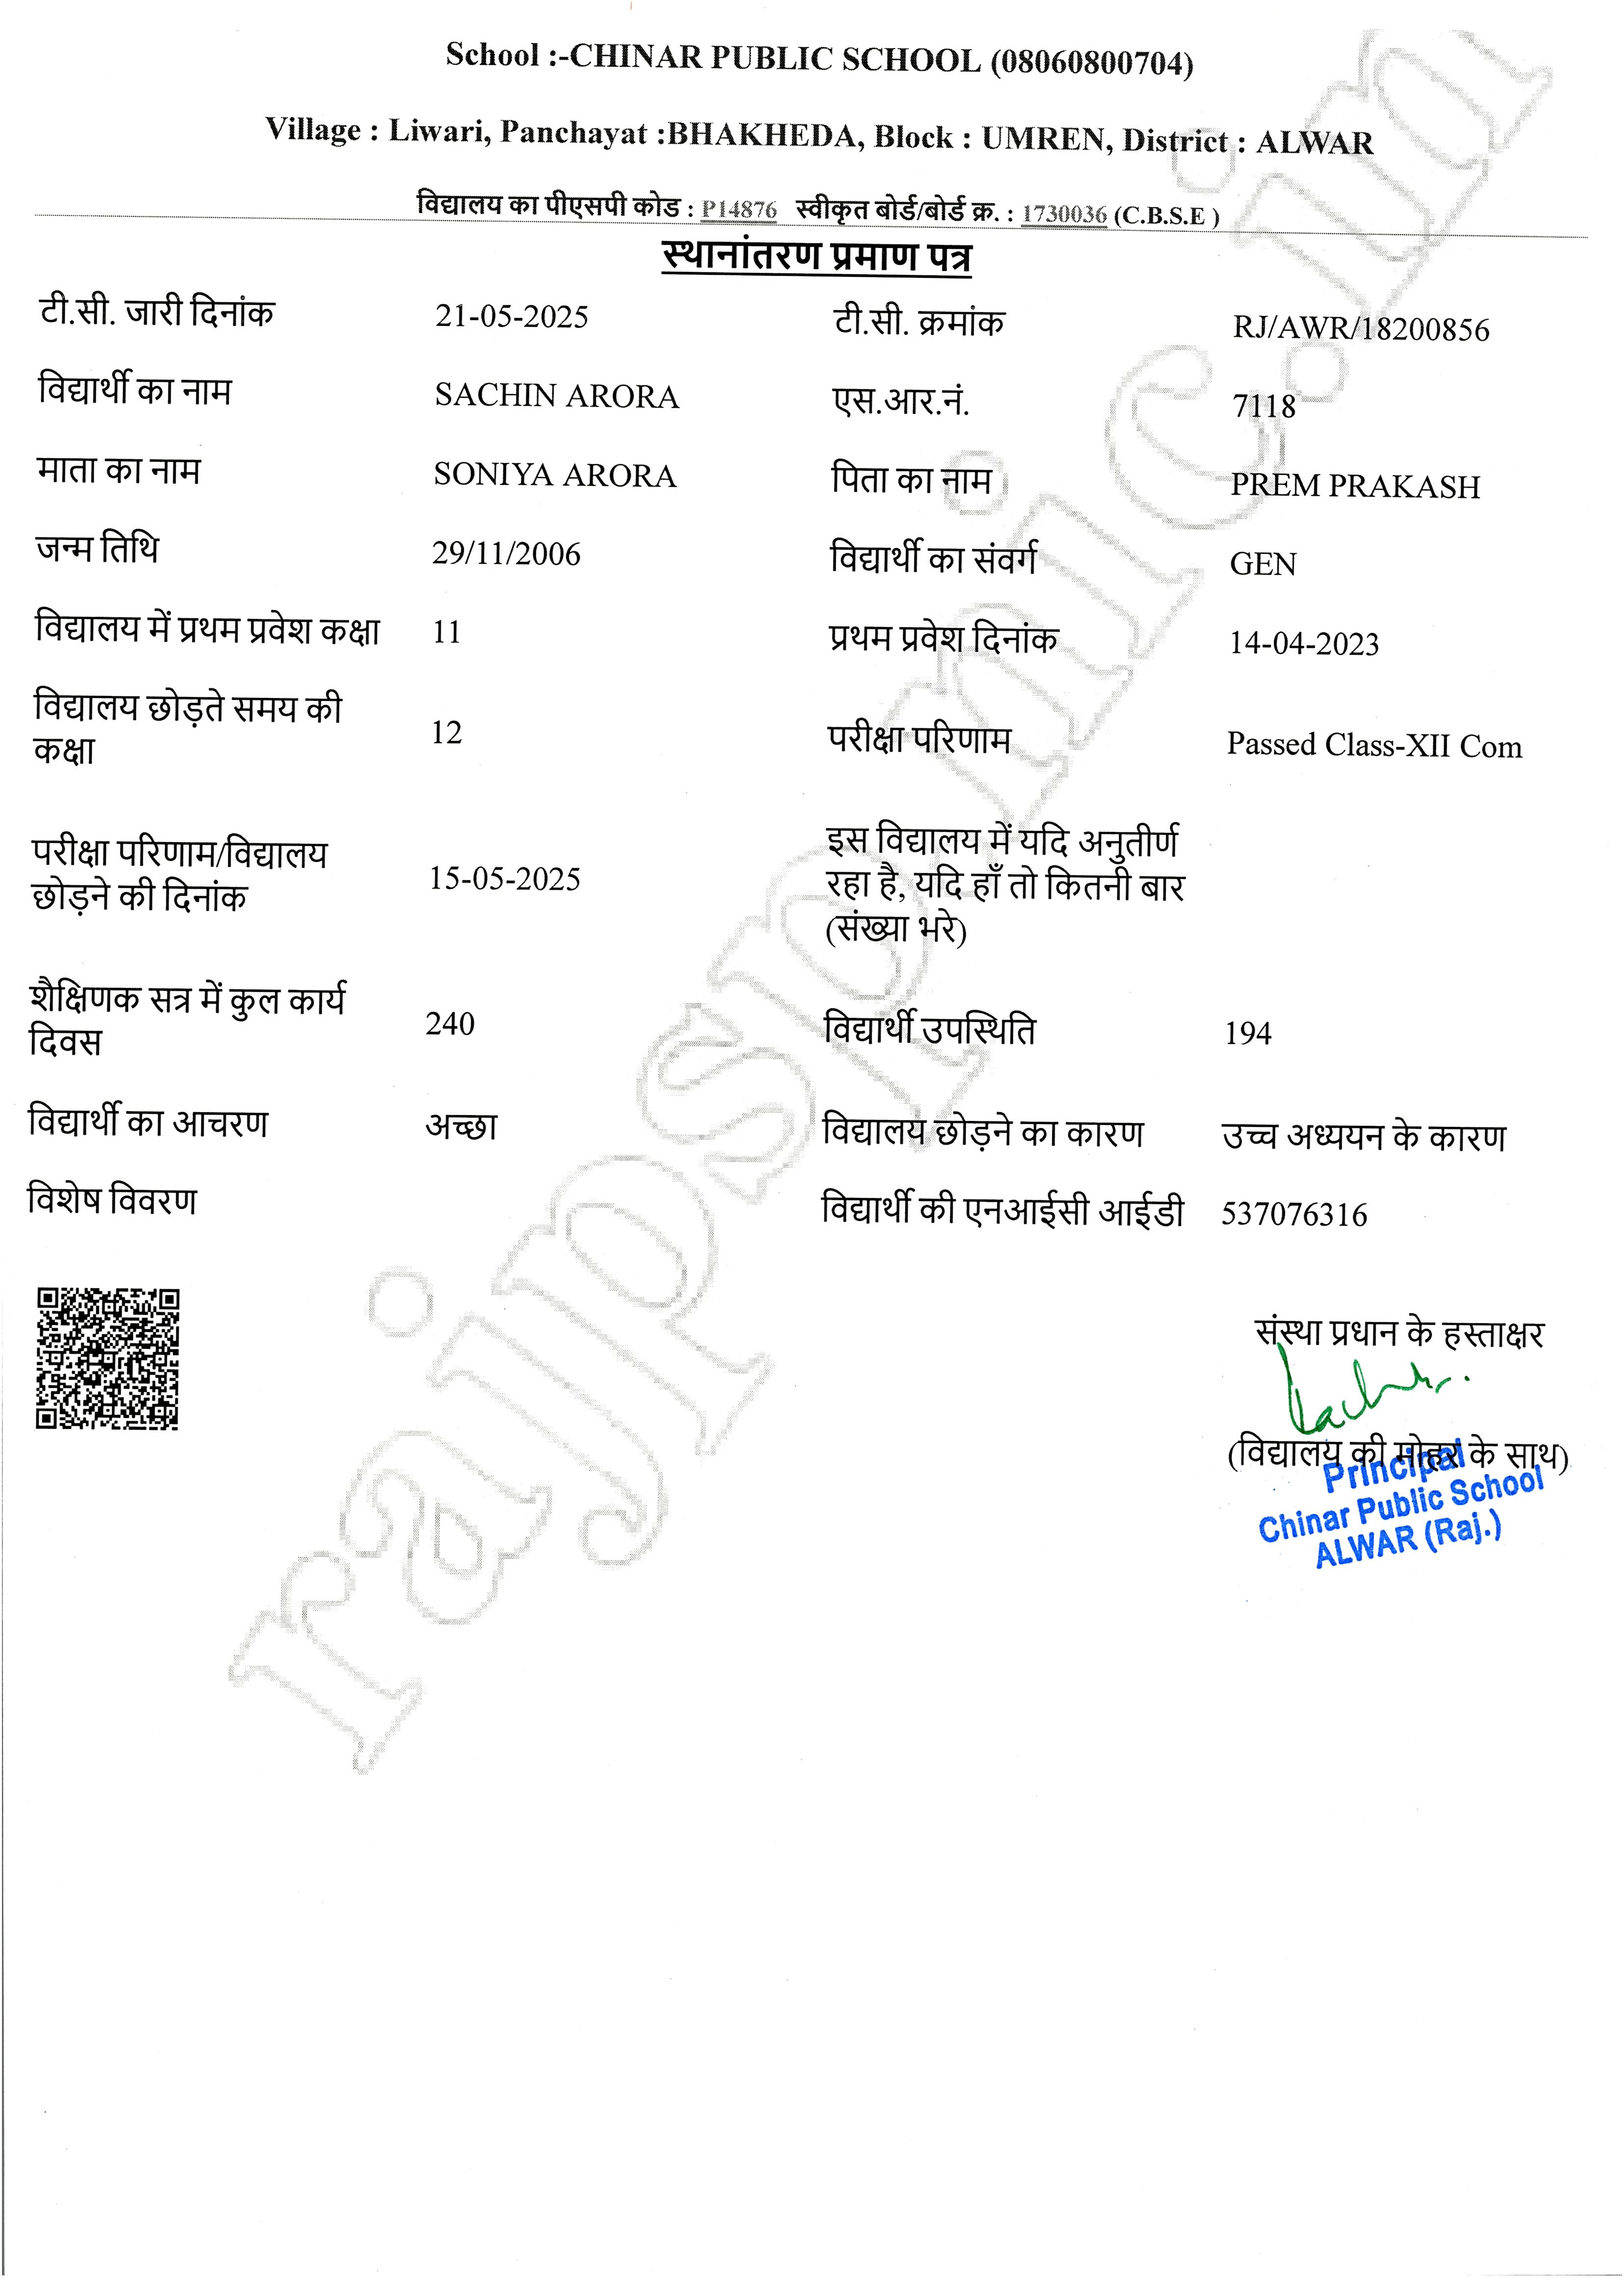 School :-CHINAR PUBLIC SCHOOL (08060800704)
Village : Liwari, Panchayat :BHAKHEDA, Block : UMREN, District : ALWAR
विद्यालय का पीएसपी कोड : P14876 स्वीकृत बोर्ड/बोर्ड क्र. : 1730036 (C.B.S.E )
स्थानांतरण प्रमाण पत्र
टी.सी. जारी दिनांक 21-05-2025 टी.सी. क्रमांक RJ/AWR/18200856
विद्यार्थी का नाम SACHIN ARORA एस.आर.नं. 7118
माता का नाम SONIYA ARORA पिता का नाम PREM PRAKASH
जन्म तिथि 29/11/2006 विद्यार्थी का संवर्ग GEN
विद्यालय में प्रथम प्रवेश कक्षा 11 प्रथम प्रवेश दिनांक 14-04-2023
विद्यालय छोड़ते समय की
कक्षा 12 परीक्षा परिणाम Passed Class-XII Com
परीक्षा परिणाम/विद्यालय
छोड़ने की दिनांक 15-05-2025
इस विद्यालय में यदि अनुतीर्ण
रहा है, यदि हाँ तो कितनी बार
(संख्या भरे)
शैक्षिणक सत्र में कुल कार्य
दिवस 240 विद्यार्थी उपस्थिति 194
विद्यार्थी का आचरण अच्छा विद्यालय छोड़ने का कारण उच्च अध्ययन के कारण
विशेष विवरण विद्यार्थी की एनआईसी आईडी 537076316
संस्था प्रधान के हस्ताक्षर
(विद्यालय की मोहर के साथ)
Principal
Chinar Public School
ALWAR (Raj.)
rajpsp.nic.in